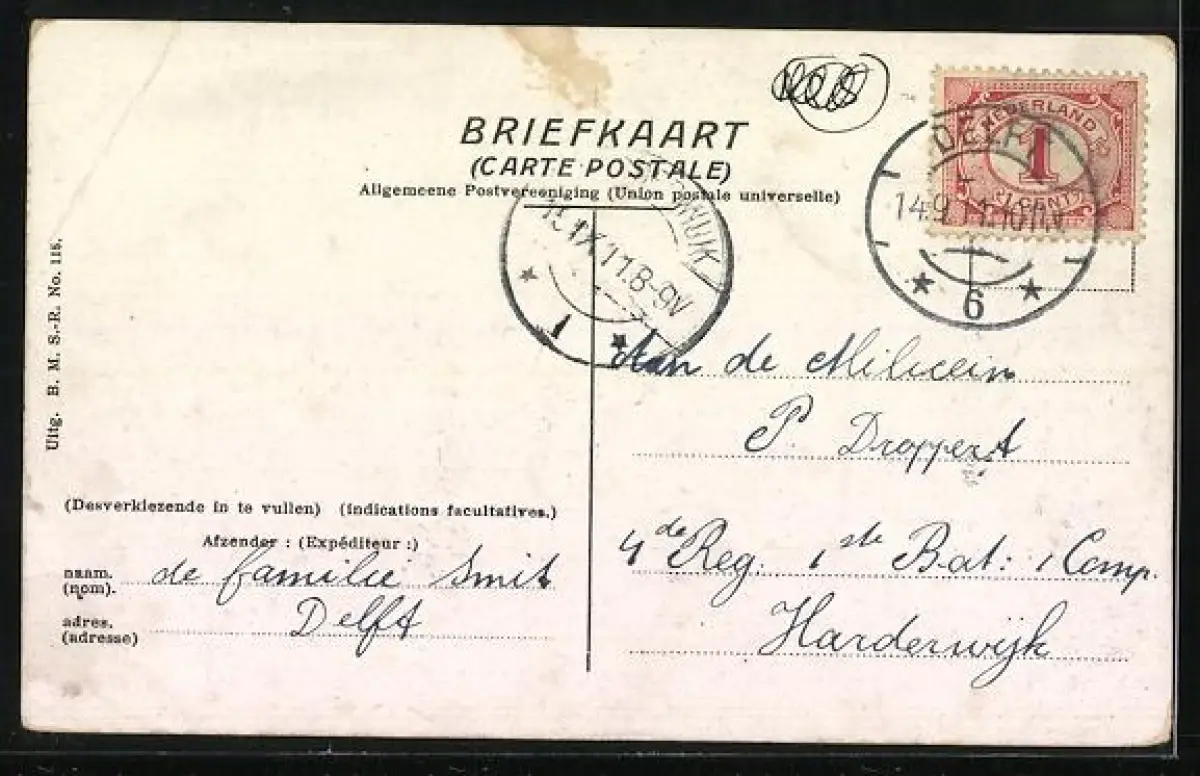 BRIEFKAART
(CARTE POSTALE)
Allgemeene Postvereeniging (Union postale universelle)
NEDERLAND
1
1 CENT
DELFT
14.9.11.10
6
15 IX 11.8-9V
WIJK
1
Uitg. B. M. S.-R. No. 115.
Aan de Milicein
P. Droppert
4de Reg. 1ste Bat: 1 Comp.
Harderwijk
(Desverkiezende in te vullen) (indications facultatives.)
Afzender : (Expéditeur :)
naam. de familie Smit
(nom).
adres. Delft
(adresse)